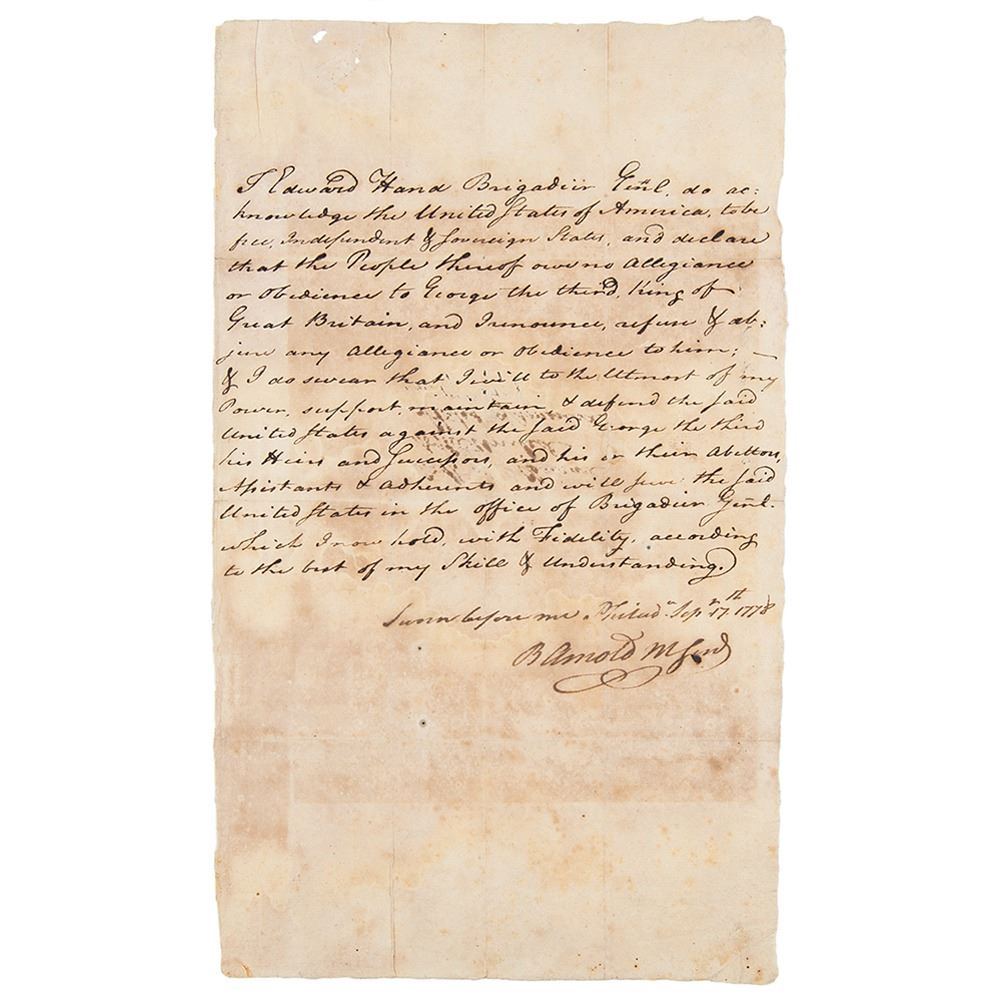 I Edward Hand Brigadiir Genl. do ac:
knowledge the United States of America, to be
free, Independent & Sovereign States, and declare
that the People thereof owe no Allegiance
or Obedience to George the third, King of
Great Britain, and I renounce, refuse & ab:
jure any Allegiance or Obedience to him; —
& I do swear that I will to the Utmost of my
Power, support, maintain, & defend the said
United States against the said George the third
his Heirs and Successors, and his or their Abettors,
Assistants & Adherents and will serve the said
United States in the office of Brigadier Genl.
which I now hold, with Fidelity, according
to the best of my Skill & Understanding.
Sworn before me Philada. Sepr. 17th 1778
B Arnold M Genl